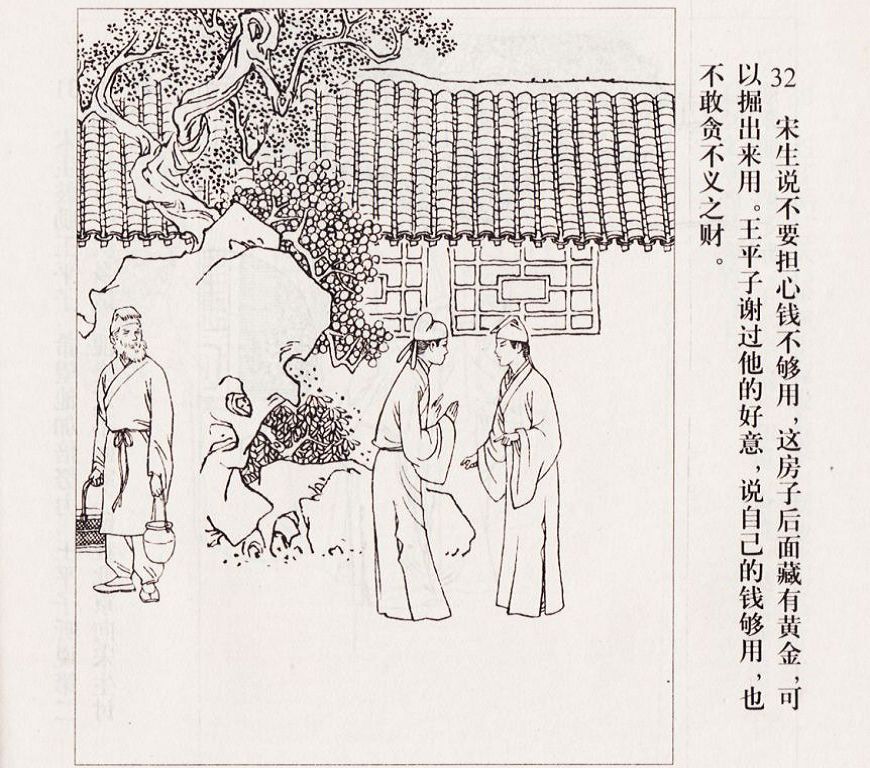 32 宋生说不要担心钱不够用，这房子后面藏有黄金，可
以掘出来用。王平子谢过他的好意，说自己的钱够用，也
不敢贪不义之财。